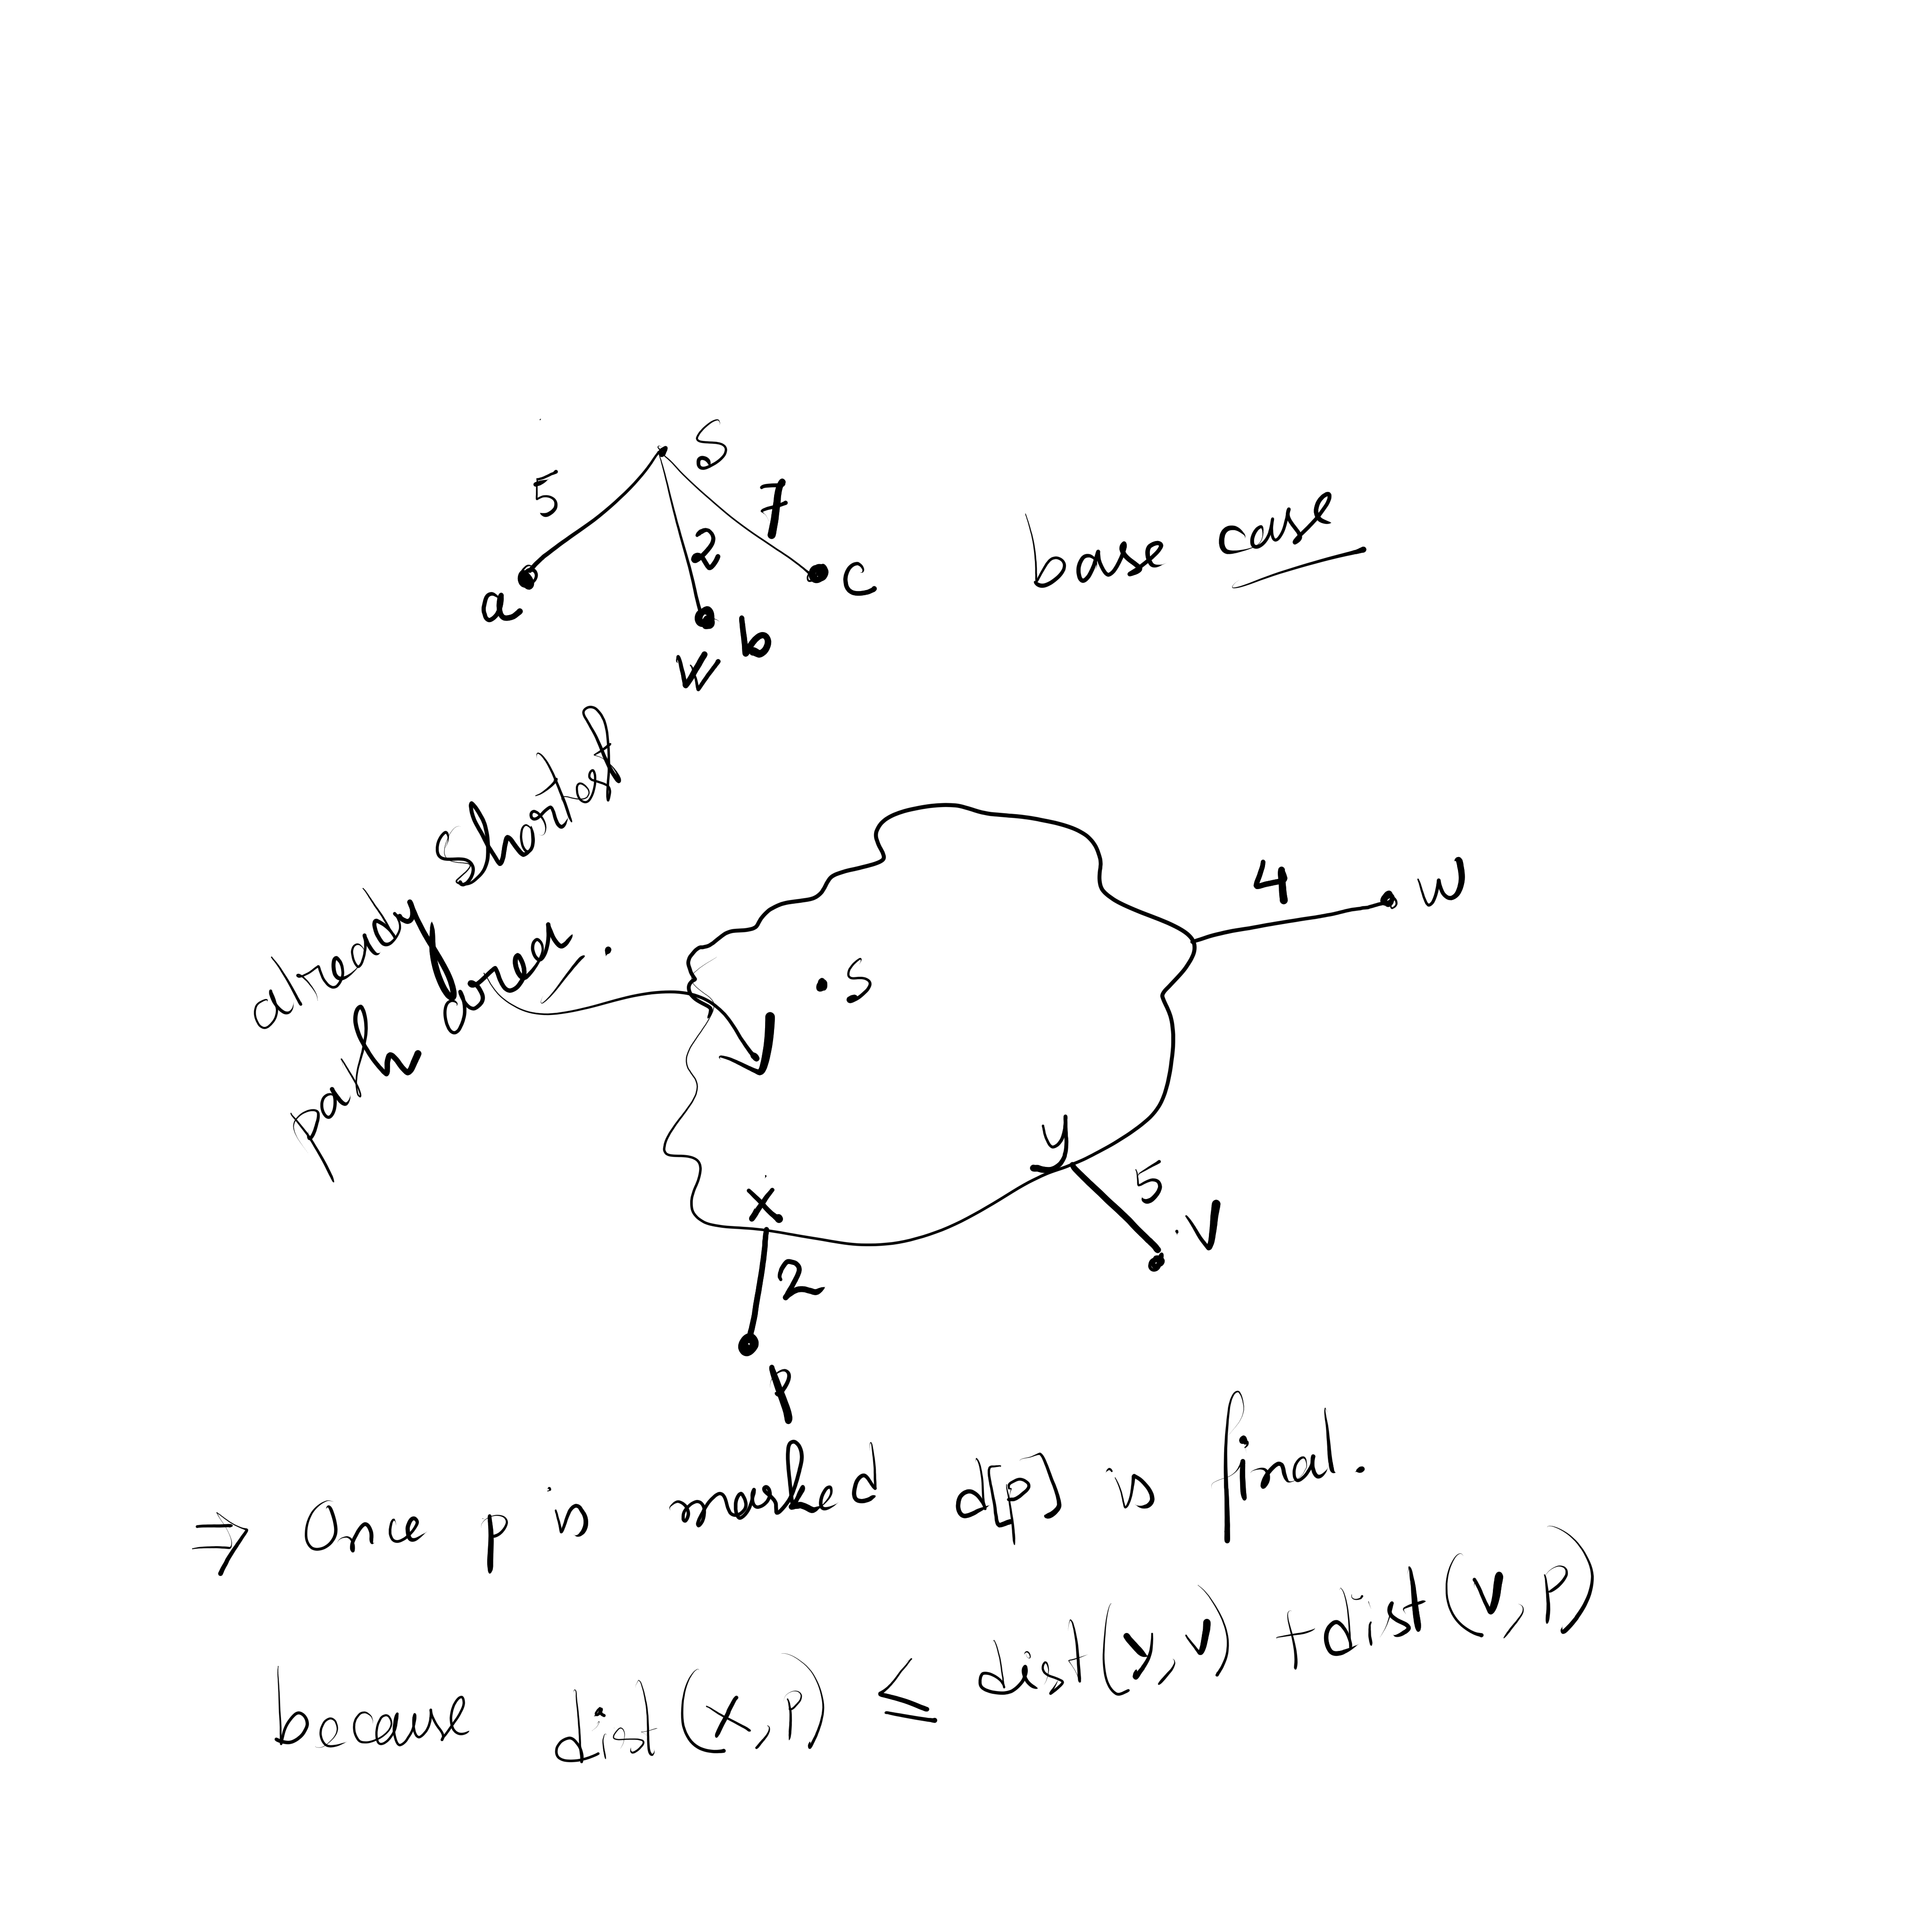 S
5
7
2
a
c
b
base case
already shortest
path done.
4
u
.s
y
5
v
x
2
p
⇒ Once p is marked d[p] is final.
because dist(x,p) ≤ dist(y,v) + dist(v,p)